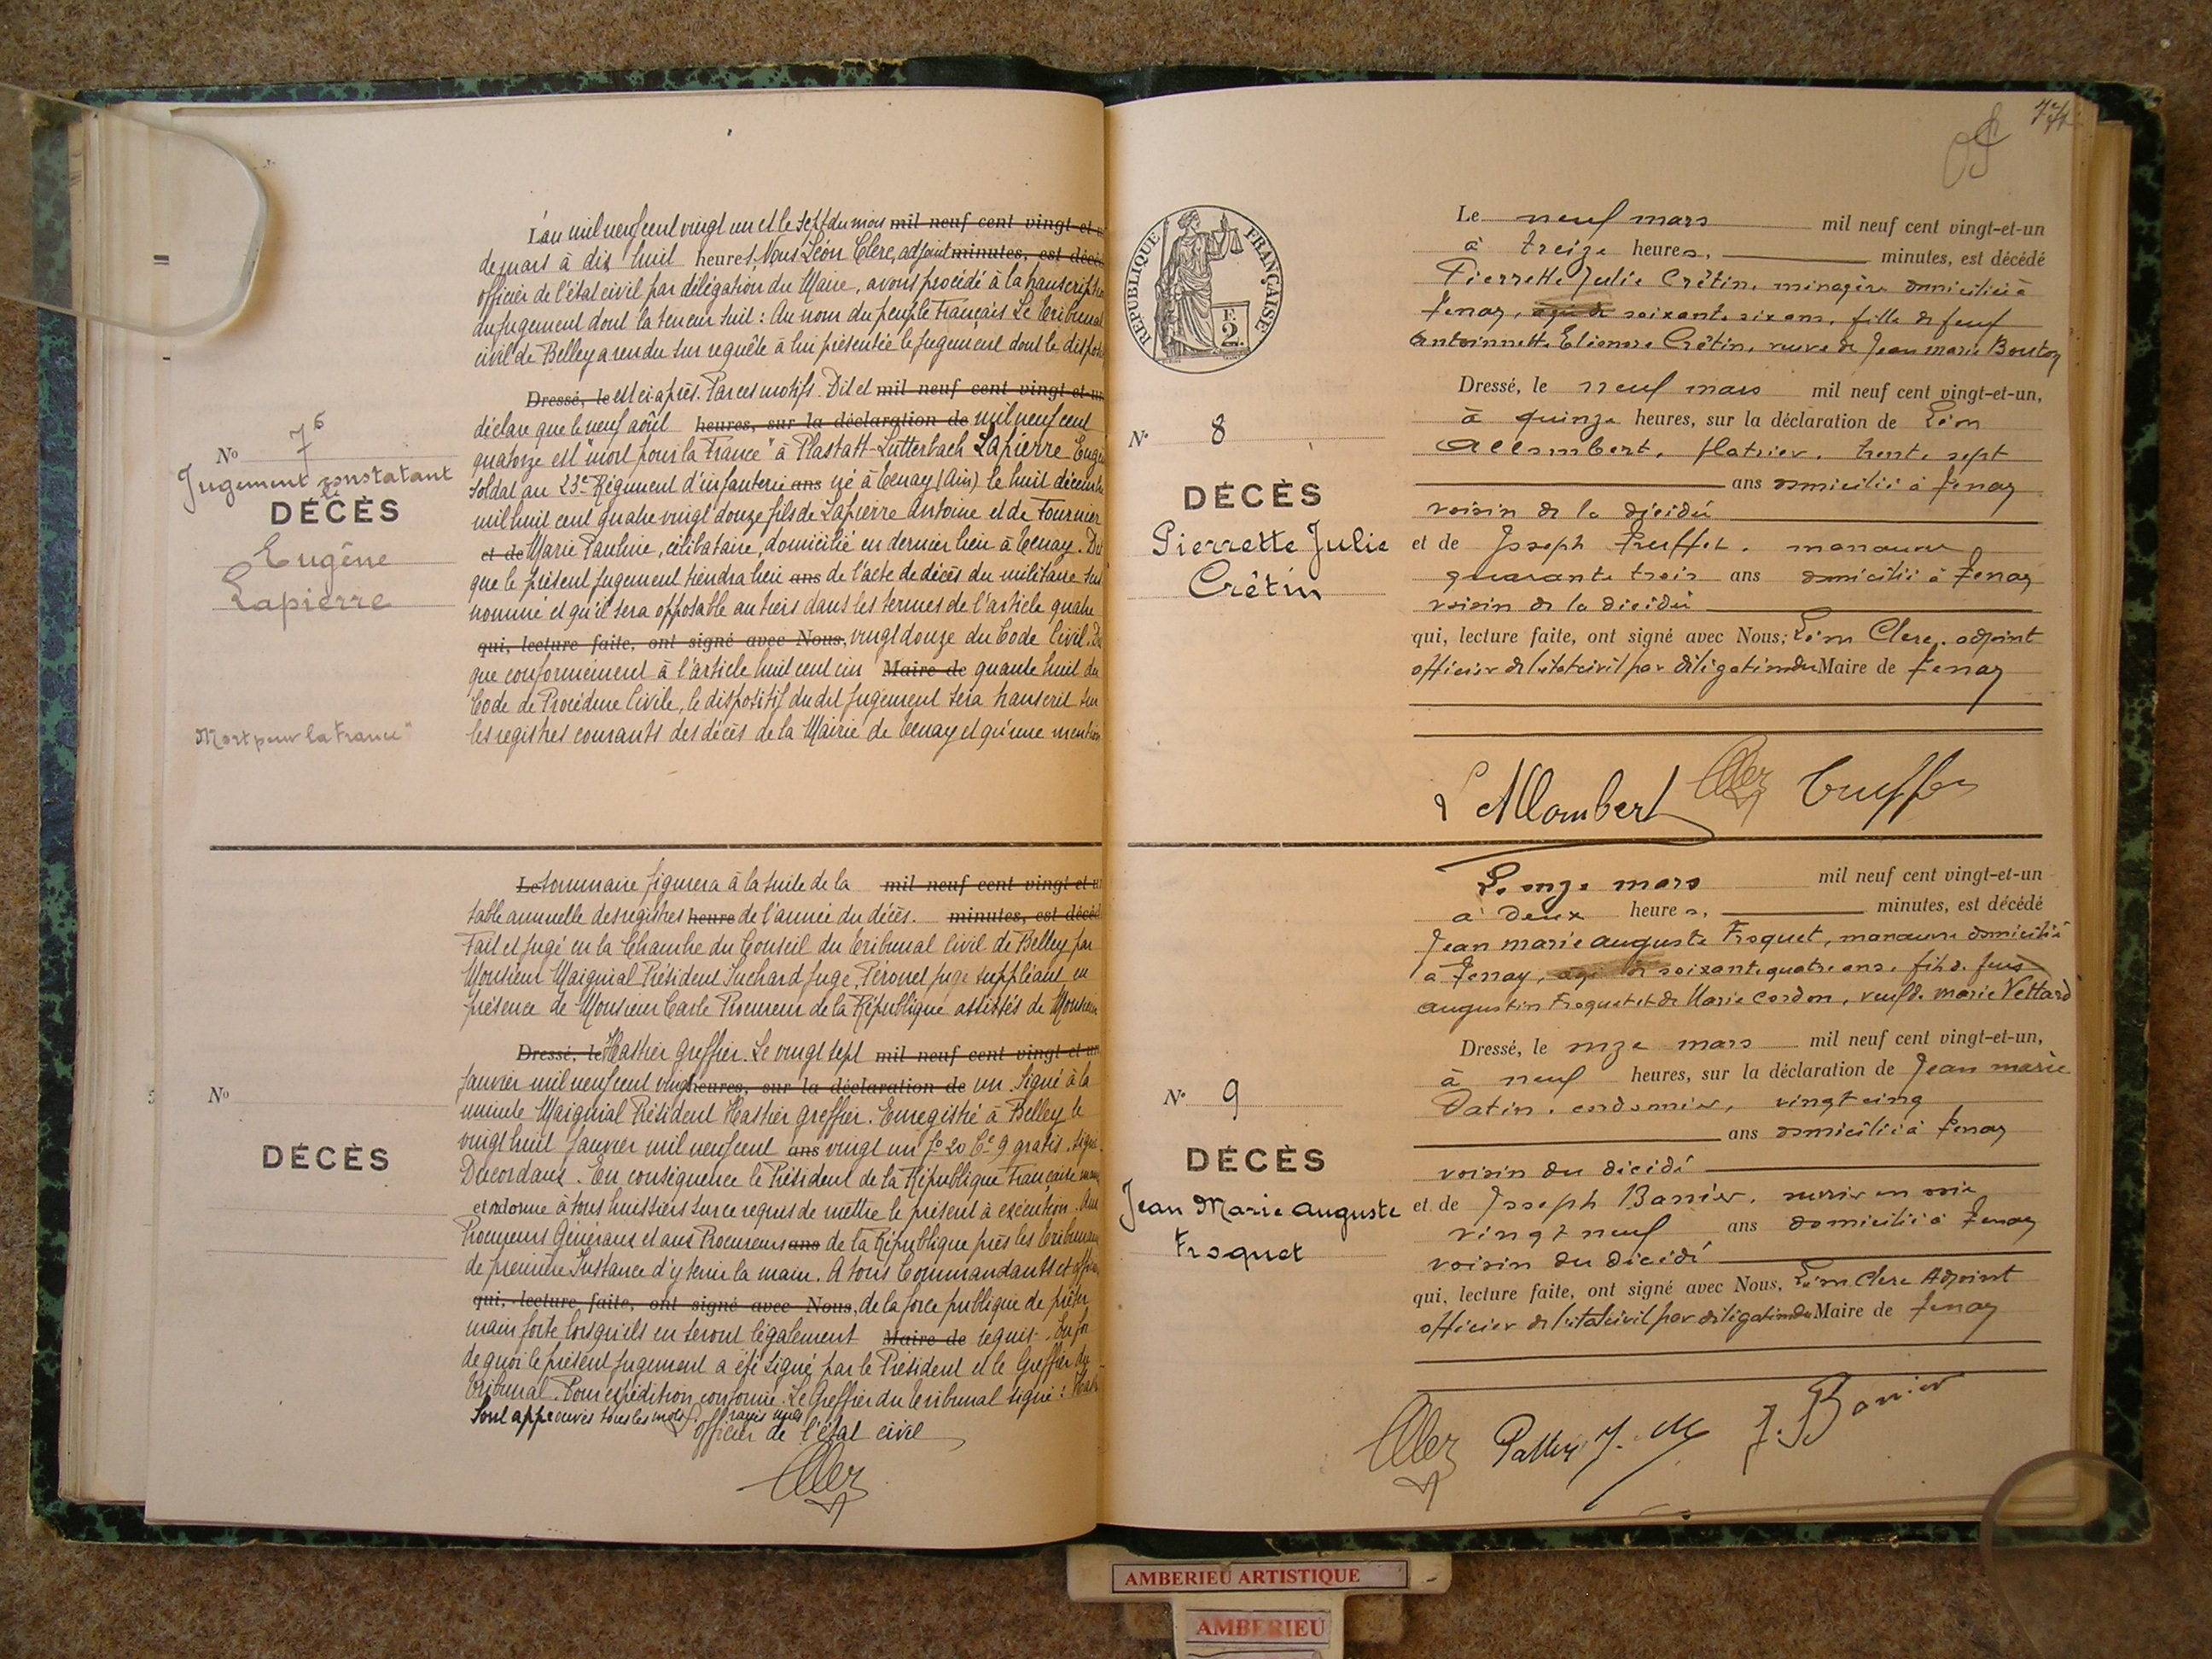 L'an mil neuf cent vingt un et le sept du mois mil neuf cent vingt-et-u
de mars à dix huit heures, Nous Léon Clerc, adjoint minutes, est décé
officier de l'état civil par délégation du Maire, avons procédé à la transcription
du jugement dont la teneur suit : Au nom du peuple Français Le Tribunal
civil de Belley a rendu sur requête à lui présentée le jugement dont le disposi
Dressé, le est ci-après. Par ces motifs. Dit et mil neuf cent vingt-et-un
déclare que le neuf août heures, sur la déclaration de mil neuf cent
quatorze est "mort pour la France" à Plastatt-Lutterbach Lapierre Eugène
soldat au 23e Régiment d'infanterie ans né à Tenay (Ain) le huit décembre
mil huit cent quatre vingt douze fils de Lapierre Antoine et de Fournier
et de Marie Pauline, célibataire, domicilié en dernier lieu à Tenay. Dit
que le présent jugement tiendra lieu ans de l'acte de décès du militaire sus
nommé et qu'il sera opposable au tiers dans les termes de l'article quatre
qui, lecture faite, ont signé avec Nous, vingt douze du Code Civil. Dit
que conformément à l'article huit cent cin Maire de quante huit du
Code de Procédure Civile, le dispositif du dit jugement sera transcrit sur
les registres courants des décès de la Mairie de Tenay et qu'une mention
No 7 6
Jugement constatant
le
DÉCÈS
Eugène
Lapierre
"Mort pour la France"
Le sommaire figurera à la suite de la mil neuf cent vingt-et-u
table annuelle des registres heure de l'année du décès. minutes, est décéd
Fait et jugé en la Chambre du Conseil du Tribunal Civil de Belley par
Monsieur Maignial Président Suchard Juge, Péronet juge suppléant en
présence de Monsieur Carle Procureur de la République assistés de Monsieur
Dressé, le Hastier greffier. Le vingt sept mil neuf cent vingt-et-un
Janvier mil neuf cent vingt heures, sur la déclaration de un. Signé à la
minute Maignial Président Hastier greffier. Enregistré à Belley le
vingt huit Janvier mil neuf cent ans vingt un fo 20 Ce 9 gratis. signé
Ducordans. En conséquence le Président de la République Française mande
et ordonne à tous huissiers sur ce requis de mettre le présent à exécution. Aux
Procureurs Généraux et aux Procureurs ans de la République près les tribunaux
de première Instance d'y tenir la main. A tous Commandants et officiers
qui, lecture faite, ont signé avec Nous, de la force publique de prêter
main forte lorsqu'ils en seront légalement Maire de requis. En foi
de quoi le présent jugement a été signé par le Président et le Greffier du
Tribunal. Pour expédition conforme. Le Greffier du tribunal signé : Hast
Sont approuvés tous les mots rayés nuls
officier de l'état civil
No
DÉCÈS
RÉPUBLIQUE FRANÇAISE
F.
2.
Le neuf mars mil neuf cent vingt-et-un
à treize heures, minutes, est décédé
Pierrette Julie Crétin, ménagère domiciliée à
Tenay, agée de soixante six ans, fille de feus
Antoinette Etienne Crétin, veuve de Jean Marie Bouton
Dressé, le neuf mars mil neuf cent vingt-et-un,
à quinze heures, sur la déclaration de Léon
Allombert, platrier, trente sept
ans domicilié à Tenay
voisin de la décédée
et de Joseph Truffet, manœuvre
quarante trois ans domicilié à Tenay
voisin de la décédée
qui, lecture faite, ont signé avec Nous, Léon Clerc, adjoint
officier de l'état civil par délégation du Maire de Tenay
L Allombert Clerc Truffet
No 8
DÉCÈS
Pierrette Julie
Crétin
Le onze mars mil neuf cent vingt-et-un
à deux heures, minutes, est décédé
Jean Marie Auguste Froquet, manœuvre domicilié
à Tenay, agé de soixante quatre ans, fils de feus
Augustin Froquet et de Marie Cordon, veuf de Marie Vettard
Dressé, le onze mars mil neuf cent vingt-et-un,
à neuf heures, sur la déclaration de Jean Marie
Patin, cordonnier, vingt cinq
ans domicilié à Tenay
voisin du décédé
et de Joseph Banier, ouvrier en soie
vingt neuf ans domicilié à Tenay
voisin du décédé
qui, lecture faite, ont signé avec Nous, Léon Clerc Adjoint
officier de l'état civil par délégation du Maire de Tenay
Clerc Patin J. M J. Banier
No 9
DÉCÈS
Jean Marie Auguste
Froquet
AMBERIEU ARTISTIQUE
AMBERIEU